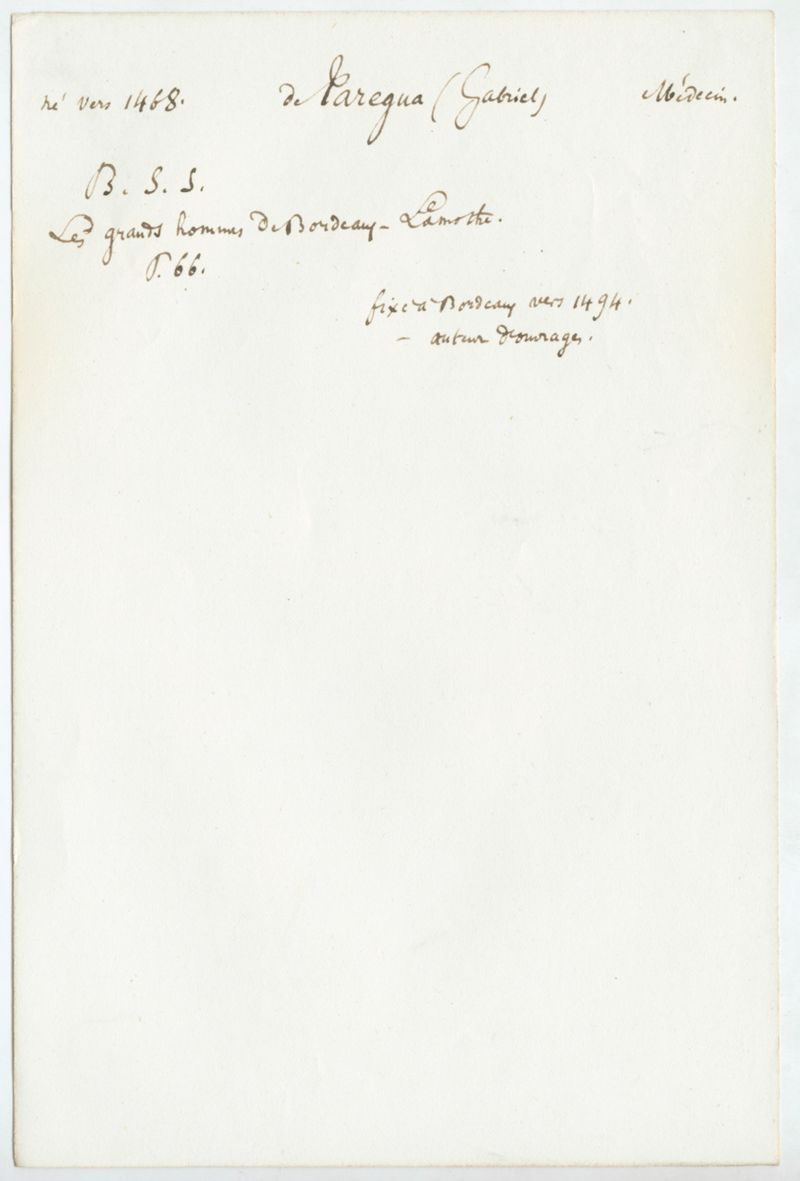 né vers 1468. de Taregua (Gabriel) Médecin.
B. S. S.
Les grands hommes de Bordeaux - Lamothe.
P. 66.
fixé à Bordeaux vers 1494.
- auteur d'ouvrages.